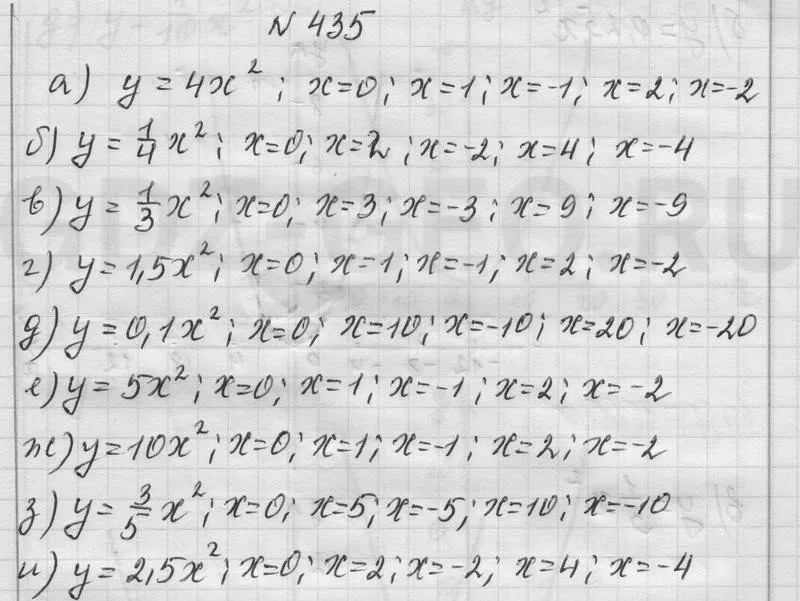 N 435
а) y = 4x²; x=0; x=1; x=-1; x=2; x=-2
б) y = 1/4 x²; x=0; x=2; x=-2; x=4; x=-4
в) y = 1/3 x²; x=0; x=3; x=-3; x=9; x=-9
г) y = 1,5x²; x=0; x=1; x=-1; x=2; x=-2
д) y = 0,1x²; x=0; x=10; x=-10; x=20; x=-20
е) y = 5x²; x=0; x=1; x=-1; x=2; x=-2
ж) y=10x²; x=0; x=1; x=-1; x=2; x=-2
з) y = 3/5 x²; x=0; x=5; x=-5; x=10; x=-10
и) y = 2,5x²; x=0; x=2; x=-2; x=4; x=-4
GDZ-GEO.RU